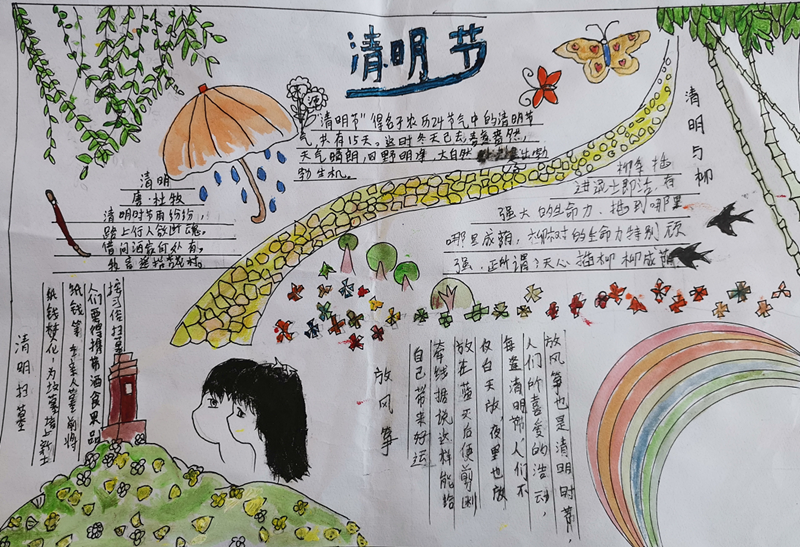 清明节
"清明节"得名于农历24节气中的清明节
气,共有15天。这时冬天已去,
天气晴朗,田野明净,大自然 出勃
勃生机。
清明
唐·杜牧
清明时节雨纷纷,
路上行人欲断魂。
借问酒家何处有,
牧童遥指
清明与柳
柳条插
进泥土即活,有
强大的生命力,插到哪里
哪里成荫,柳树的生命力特别顽
强,正所谓:无心插柳柳成荫
清明扫墓
按习俗扫墓
人们要携带酒食果品
纸钱等 亲人墓前将
纸钱焚化,为坟墓培上新土
放风筝
放风筝也是清明时节,
人们所喜爱的活动,
每逢清明节,人们不
仅白天放,夜里也放
放在蓝天后便剪断
牵线据说这样能给
自己带来好运